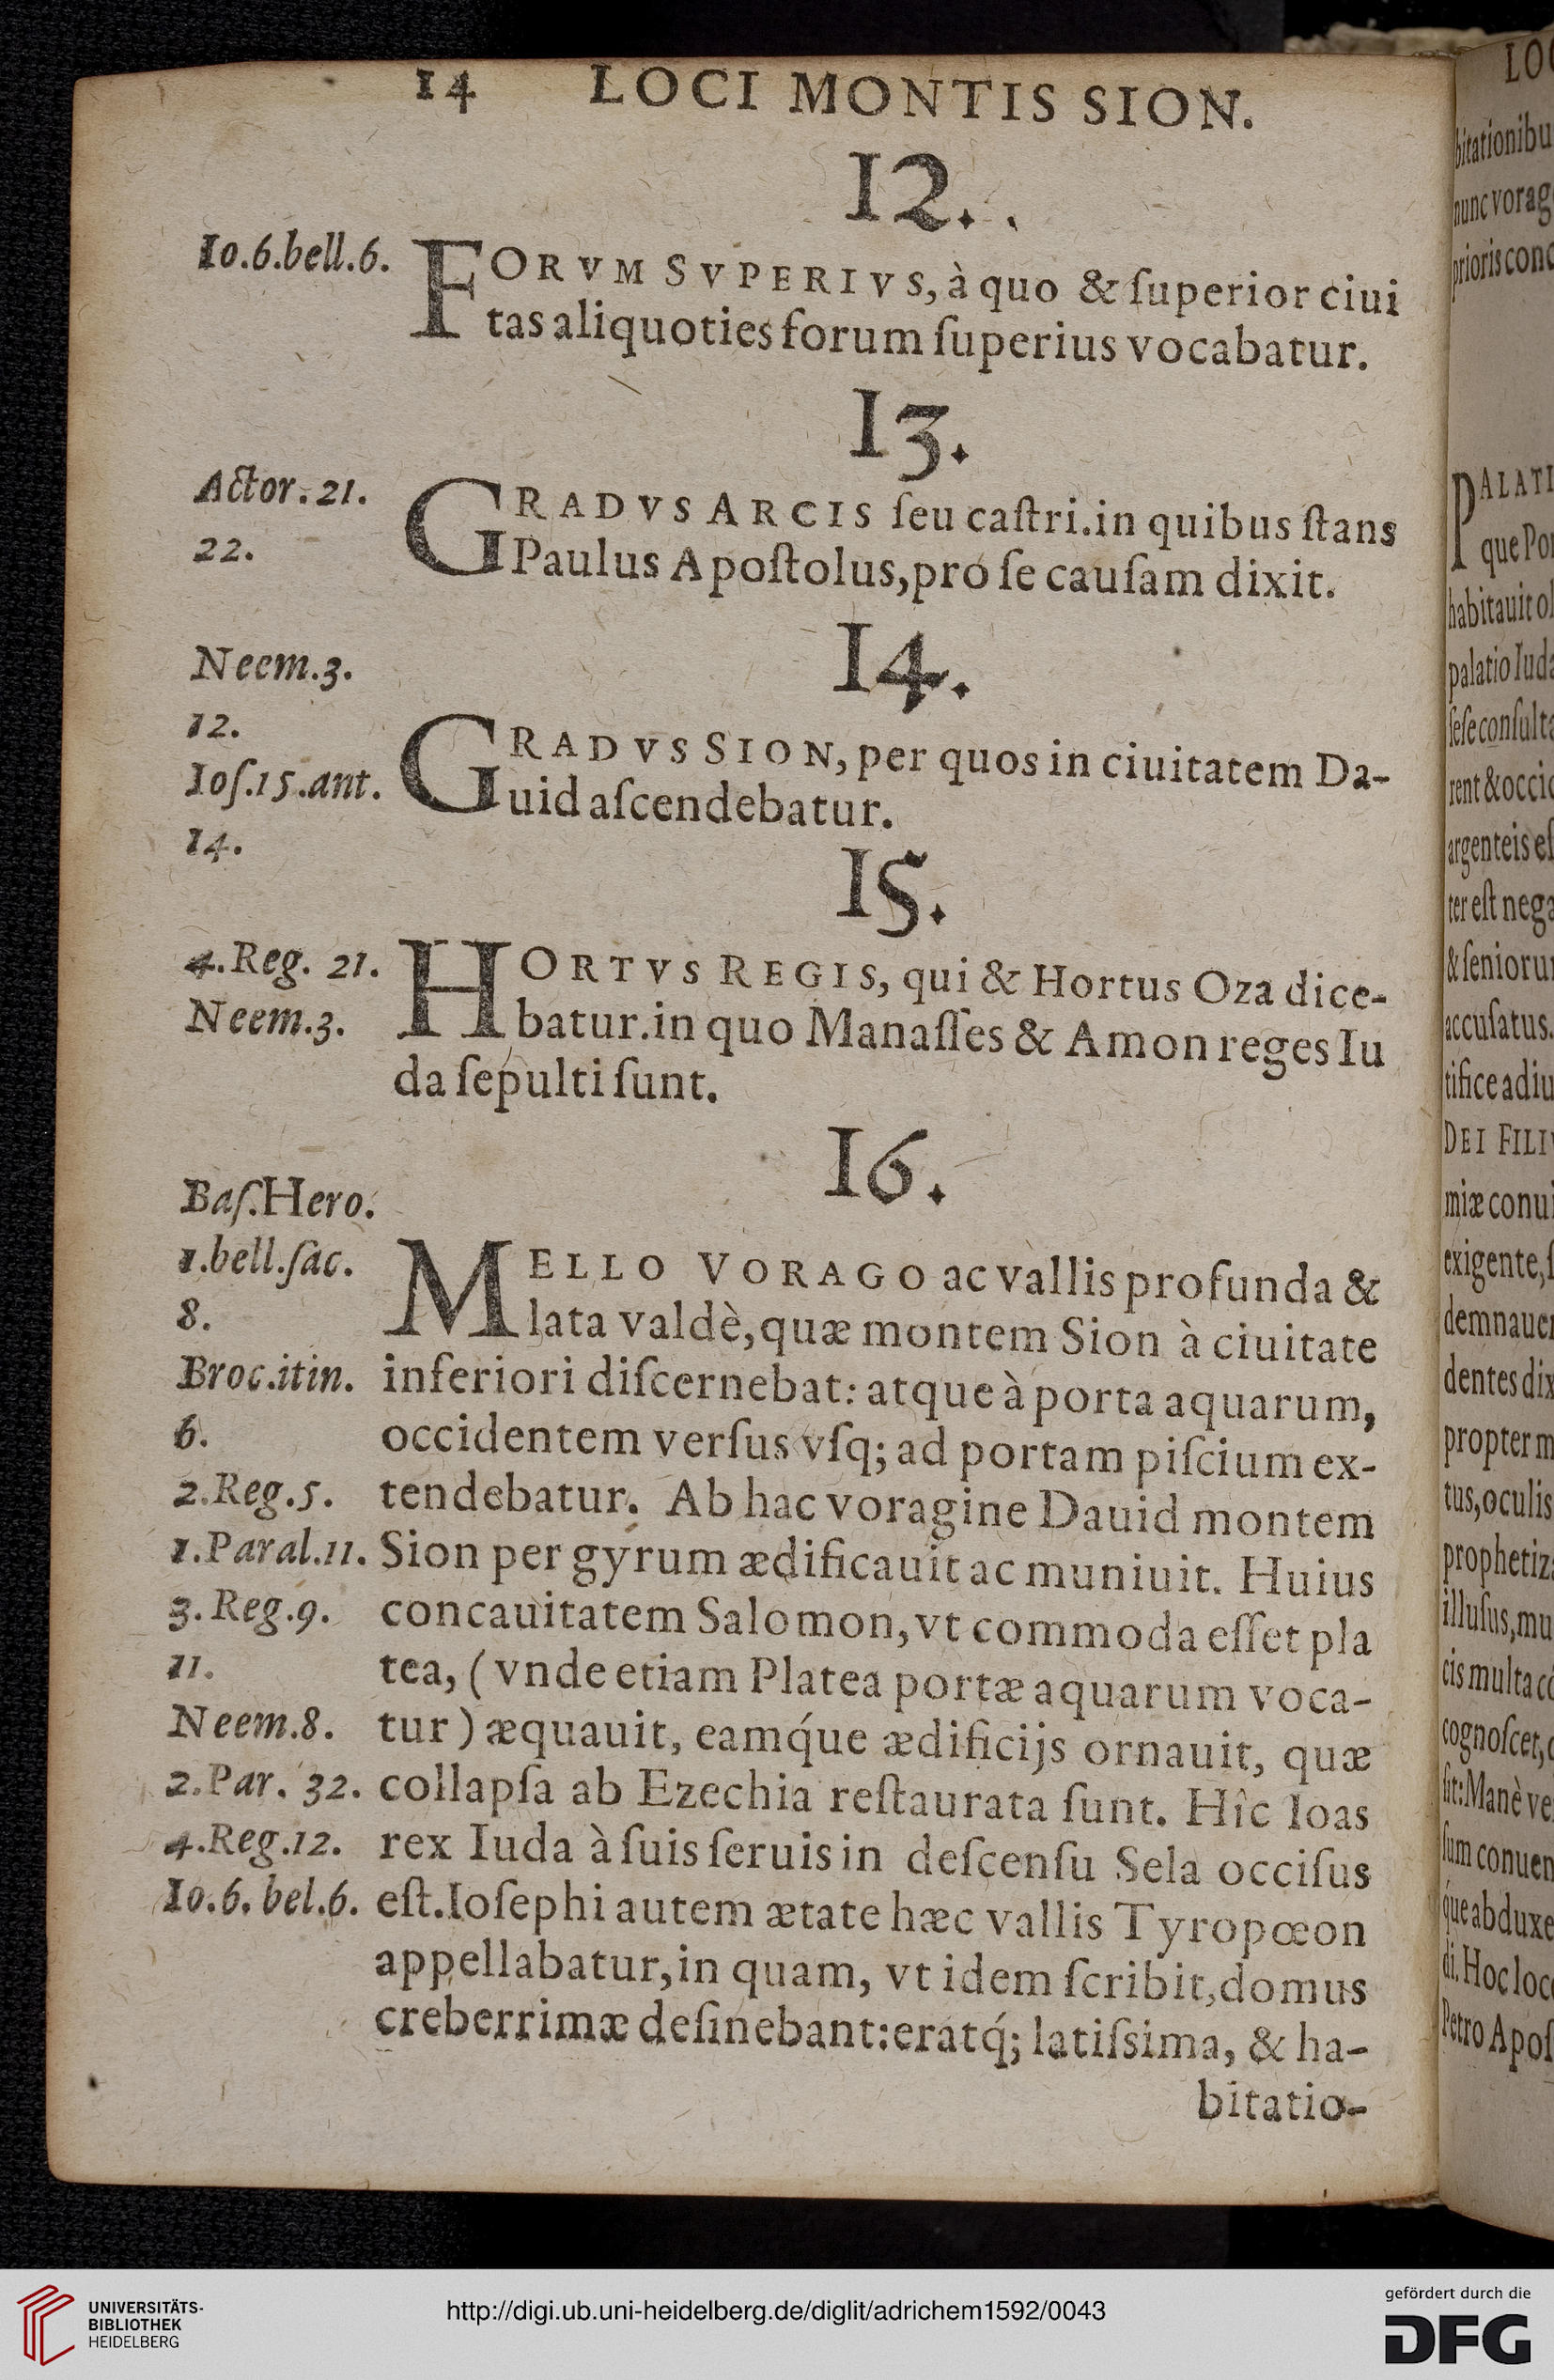 14 LOCI MONTIS SION.
12.
Io.6.bell.6.
FORVM SVPERIVS, à quo & ſuperior ciui
tas aliquoties forum ſuperius vocabatur.
13.
Actor. 21.
22.
GRADVS ARCIS ſeu caſtri. in quibus ſtans
Paulus Apoſtolus, pro ſe cauſam dixit.
14.
Neem.3.
12.
Ioſ.15.ant.
14.
GRADVS SION, per quos in ciuitatem Da-
uid aſcendebatur.
15.
4.Reg. 21.
Neem.3.
HORTVS REGIS, qui & Hortus Oza dice-
batur. in quo Manaſſes & Amon reges Iu
da ſepulti ſunt.
16.
Baſ.Hero.
1.bell.ſac.
8.
Broc.itin.
6.
2.Reg.5.
1.Paral.11.
3.Reg.9.
11.
Neem.8.
2.Par. 32.
4.Reg.12.
Io.6. bel.6.
MELLO VORAGO ac vallis profunda &
lata valdè, quæ montem Sion à ciuitate
inferiori diſcernebat: atque à porta aquarum,
occidentem verſus vſq; ad portam piſcium ex-
tendebatur. Ab hac voragine Dauid montem
Sion per gyrum ædificauit ac muniuit. Huius
concauitatem Salomon, vt commoda eſſet pla
tea, (vnde etiam Platea portæ aquarum voca-
tur) æquauit, eamq́ue ædificijs ornauit, quæ
collapſa ab Ezechia reſtaurata ſunt. Hîc Ioas
rex Iuda à ſuis ſeruis in deſcenſu Sela occiſus
eſt. Ioſephi autem ætate hæc vallis Tyropœon
appellabatur, in quam, vt idem ſcribit, domus
creberrimæ deſinebant: eratq́; latiſsima, & ha-
bitatio-
LO
bitationibu
nunc vorag
prioris conc
PALATI
que Po
habitauit ol
palatio Iuda
ſeſe conſulta
rent & occid
argenteis eſ
ter eſt nega
& ſenioru
accuſatus.
tifice adiu
DEI FILI
miæ conui
exigente, ſ
demnauer
dentes dix
propter m
tus, oculis
prophetiz
illuſus, mu
cis multa
cognoſcet,
ſit: Manè ve
ſum conuen
que abduxe
di. Hoc loc
Petro Apoſ
UNIVERSITÄTS-
BIBLIOTHEK
HEIDELBERG
http://digi.ub.uni-heidelberg.de/diglit/adrichem1592/0043
gefördert durch die
DFG